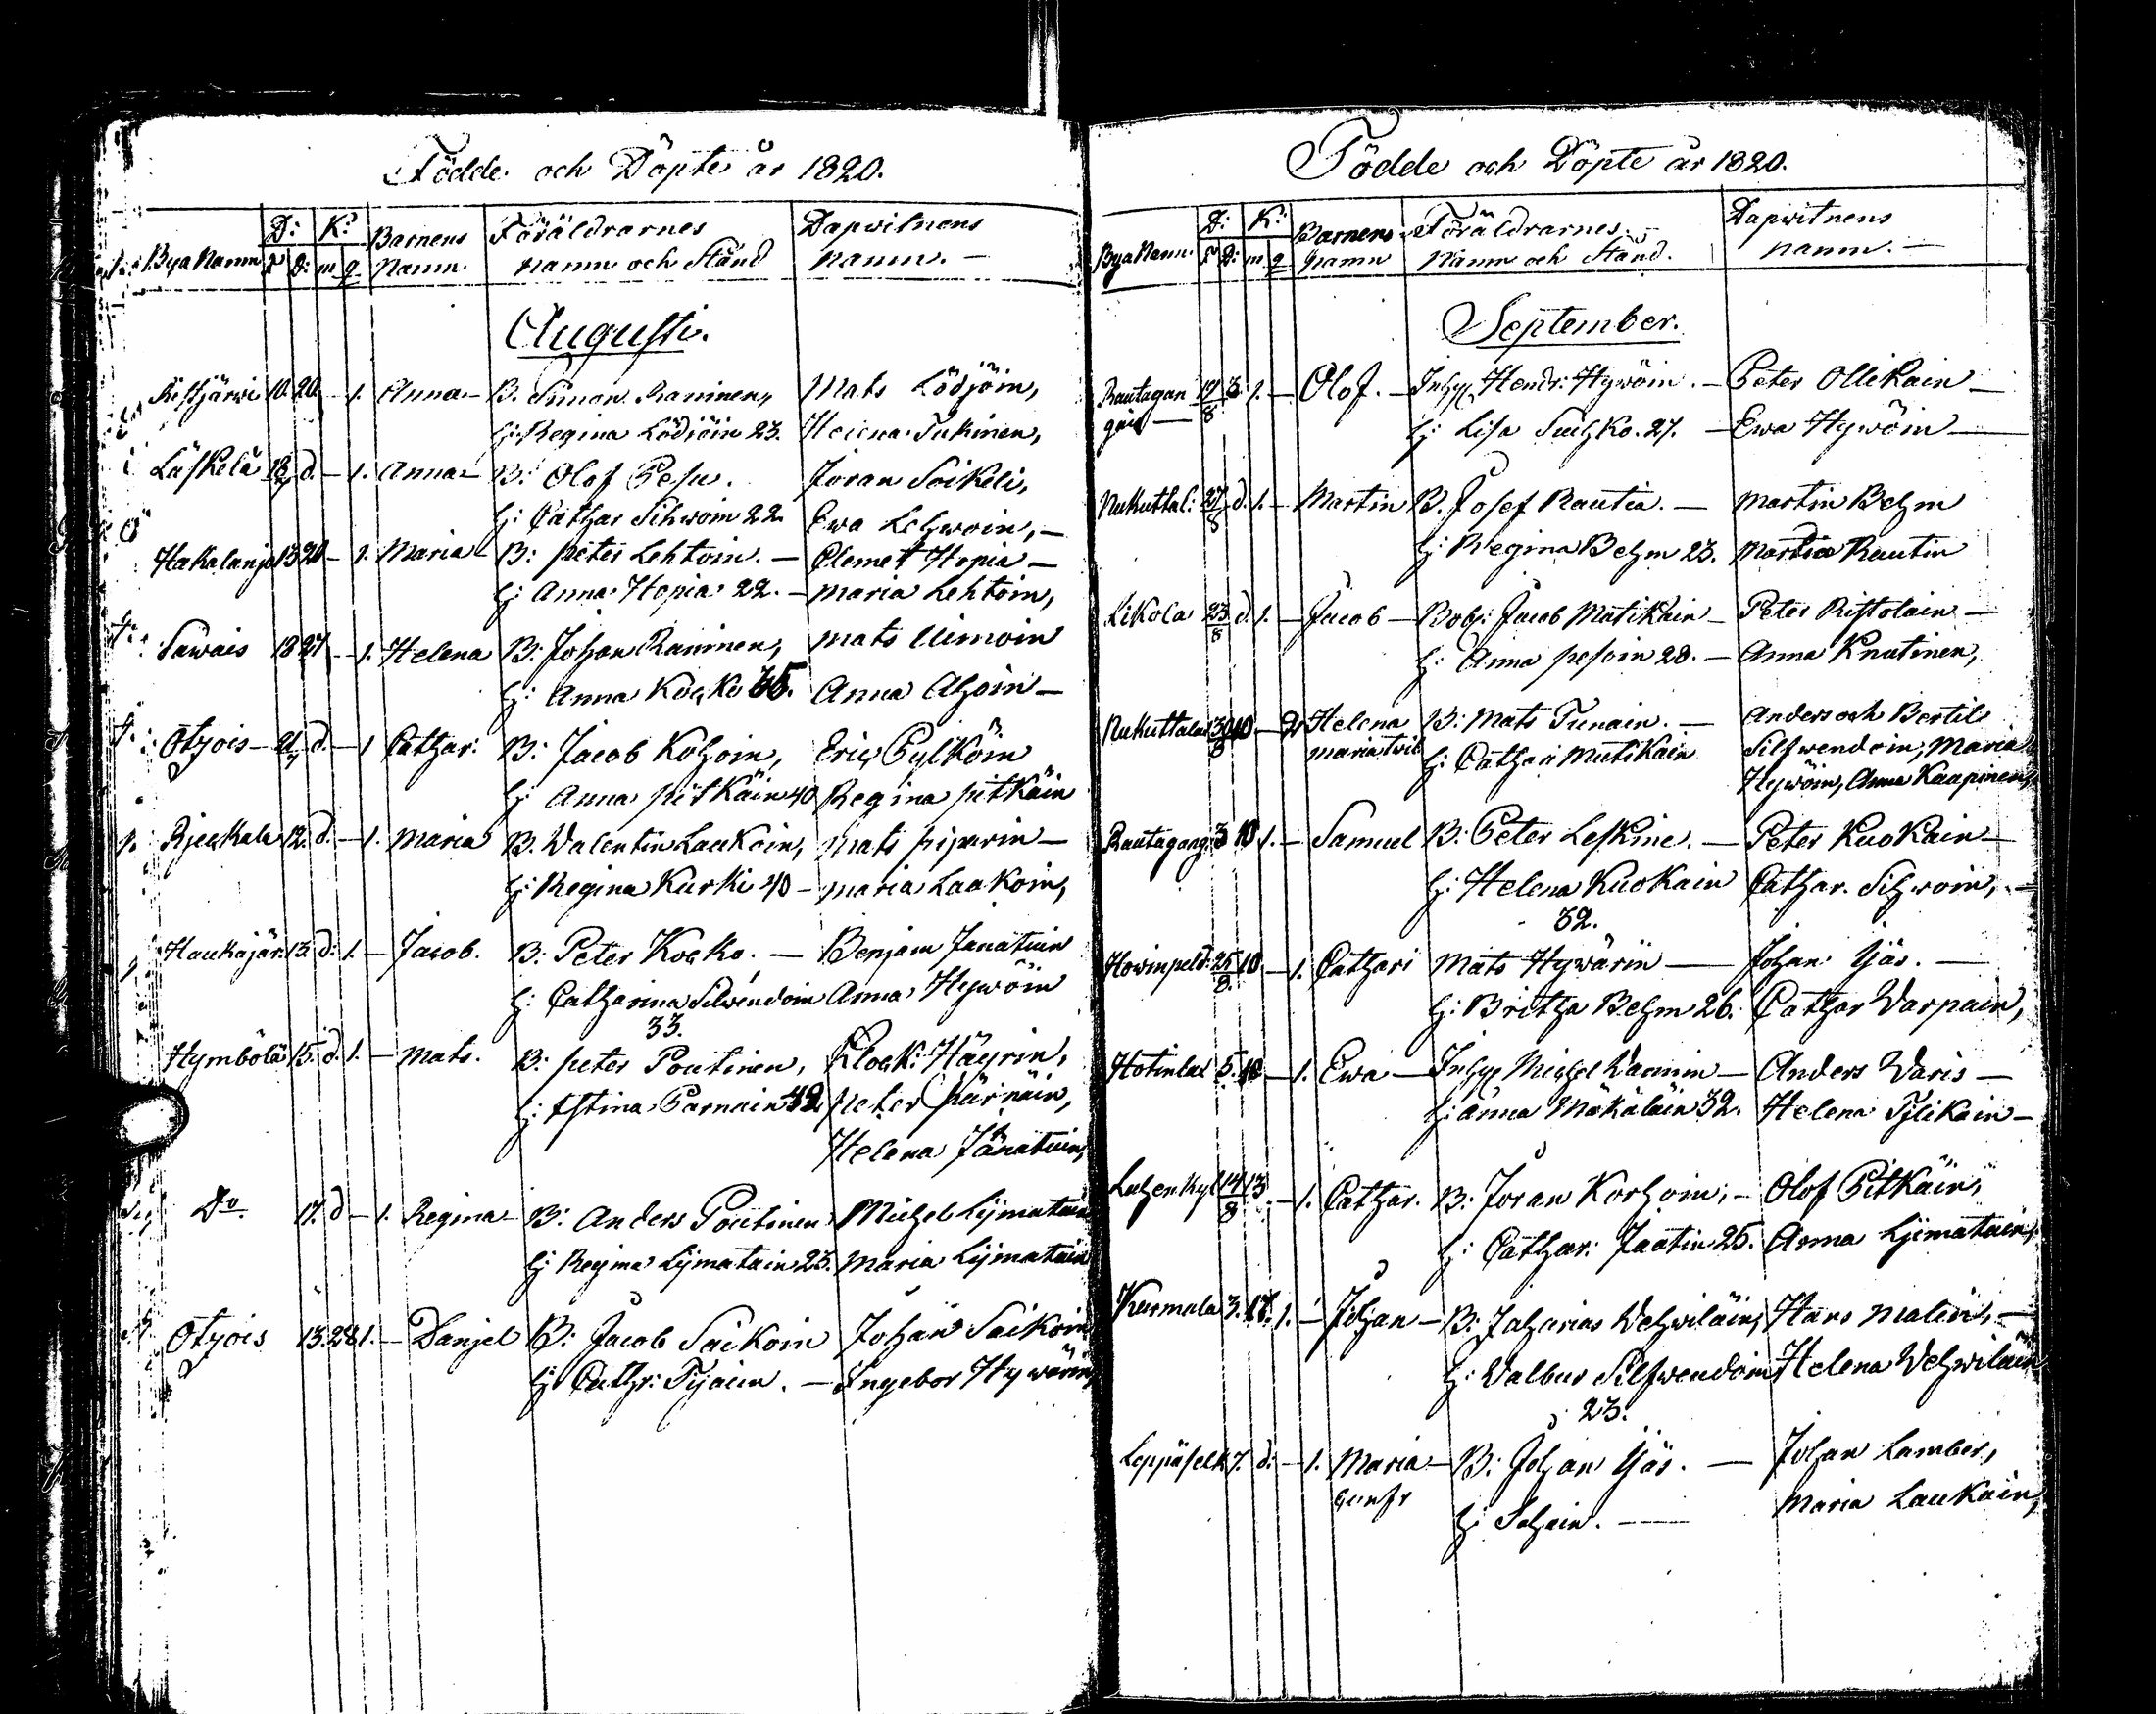 Födde och Döpte år 1820.
Bya Namn D: K: Barnens Föräldrarnes Dapwitnens
F D: m q Namn. namn och Stånd namn. —
Augusti.
Ristjärwi 10. 20. — 1. Anna — B. Simon Raninen, Mats Lödjöin,
h: Regina Lödjöin 23. Helena Tukinen,
Läskelä 18 d. — 1. Anna — B: Olof Pesu. Jöran Soikeli,
h: Cathar Sihwoin 22. Ewa Lehwoin, —
Hakalanjo 13 20 — 1. Maria — B: peter Lehtoin. — Clemet Hopia —
h: Anna Hopia 22. — maria Lehtoin,
Sawais 18 27 — 1. Helena B: Johan Raninen, mats Uimoin
h: Anna Kocko 35. Anna Ahoin —
Otsois — 21 d. — 1 Cathar: B: Jacob Kohoin, Eric Pylköin
h: Anna pitkäin 40 Regina pitkäin
Rjeckala 12. d. — 1. Maria B. Valentin Laukoin, mats piparin —
h: Regina Kurki 40 — maria Laakoin,
Haukajär: 13. d: 1. — Jacob. B: Peter Kocko. — Benjam Janatuin
h: Catharina Silwendoin Anna Hywöin
33.
Hymbölä 15. d. 1. — Mats. B: peter Poutinen, Klock: Häyrin,
h: Stina Parnain 42 peter Pärnäin,
Helena Jänatuin,
Do. 17. d — 1. Regina — B: Anders Poutinen Michel Lijmatain
h: Regina Lijmatain 23. Maria Lijmatain
Otsois 13. 28 1. — Danjel B: Jacob Saikoin Johan Saikoin
h: Cathr: Tijain. — Ingebor Hywärin,
Födde och Döpte år 1820.
Bya Namn D: K: Barnens Föräldrarnes. — Dapwitnens
F D: m q Namn Namn och Stånd. namn. —
September.
Rautagan 17/8 3. 1. — Olof. — Inhys Hendr: Hywöin. — Peter Ollikain —
gais — h: Lisa Suihko. 27. — Ewa Hywöin —
Nukuttal: 27/8 d. 1. — Martin B. Josef Rautia. — Martin Behm
h: Regina Behm 23. Martha Rautin
Likola 23/8 d. 1. — Jacob — Bobs: Jacob Matikain — Peter Ristolain —
h: Anna pesoin 28. — Anna Knutinen,
Nukuttalax 30/8 10 — 2 Helena B: Mats Tunain. — Anders och Bertil
maria twil h: Cathari Mutikain Silfwendoin, Maria
Hywöin, Anna Kaapinen,
Rautagang: 3 10 1. — Samuel B: Peter Leskine. — Peter Kuokain —
h: Helena Kuokain Cathar. Sihwoin, —
32.
Howinpeld: 25/8 10 — 1. Cathari Mats Hywärin — Johan Yäs. —
h: Britha Behm 26. Cathar Varpain,
Hotinlax 5. 10 — 1. Ewa — Inhys Michel Wannin — Anders Varis —
h: Anna Mäkäläin 32. Helena Tylikain —
Luhenkyl 14/8 13 — 1. Cathar. B: Jöran Korhoin, — Olof Pitkäin,
h: Cathar: Jaatin 25. Anna Ljimatain,
Kurmala 3. 17. 1. — Johan — B: Zaharias Wehwiläin, Hans Malin, —
h: Valbur Silfwendoin Helena Wehwiläin
23.
Leppäselk 7. d: — 1. Maria — B: Johan Yäs. — Johan Lamber,
h: Sohain. — Maria Laukain,